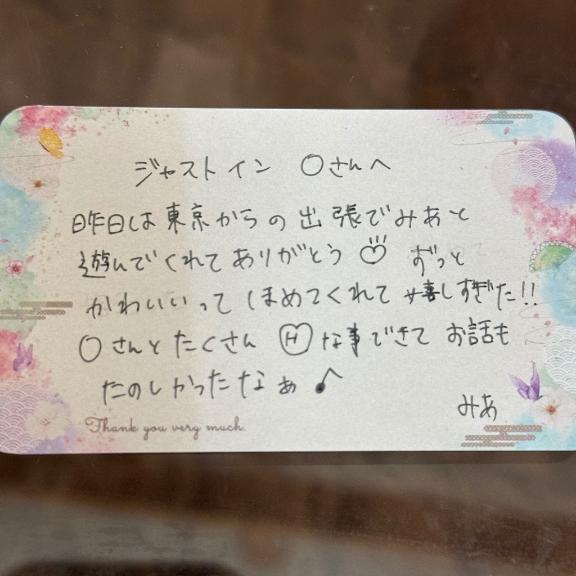 ジャストイン ○さんへ
昨日は東京からの出張でみあと
遊んでくれてありがとう♡ ずっと
かわいいってほめてくれて嬉しすぎた!!
○さんとたくさん Hな事できて お話も
たのしかったなぁ♪
みあ
Thank you very much.